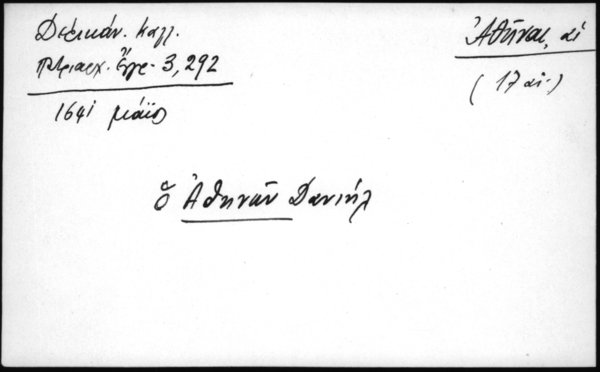 Δελικάν. Καλλ.
Πατριαρχ. Ἔγγρ. 3, 292
1641 μάϊος
Ἀθῆναι, αἱ
(17 αἰ.)
ὁ Ἀθηνῶν Δανιήλ